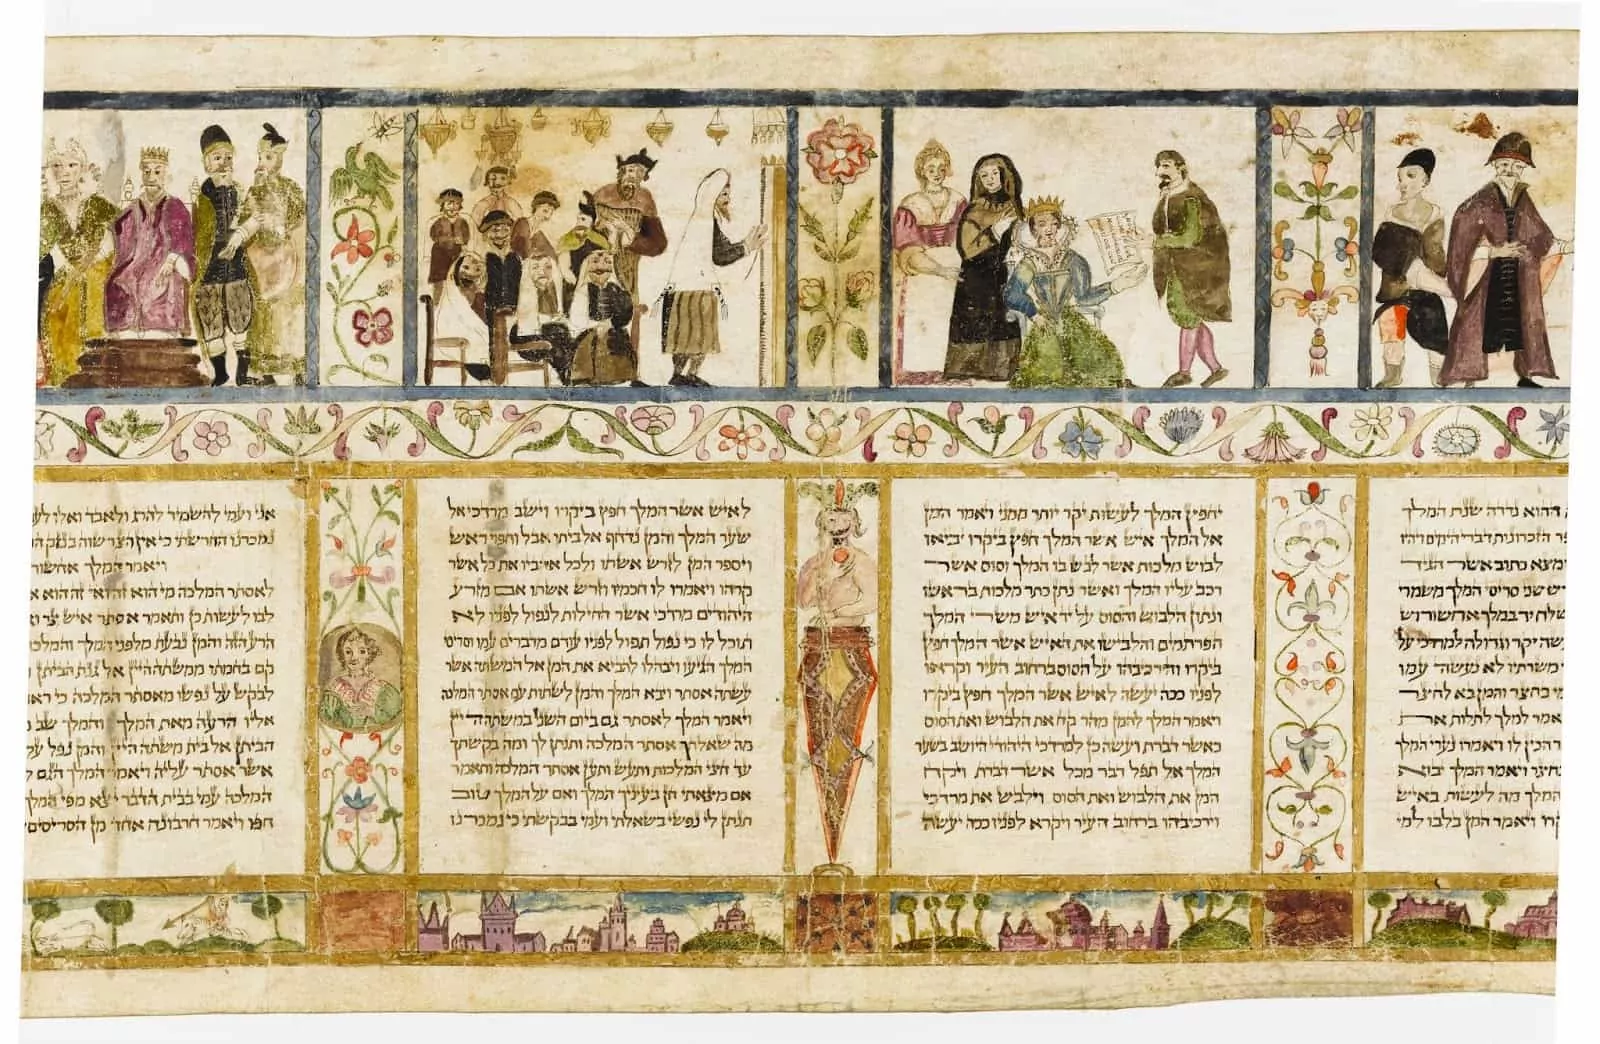 ההוא נדדה שנת המלך
הזכרנות דברי הימים ויהיו
כתוב אשר הגיד
שני סריסי המלך משמרי
יד במלך אחשורוש
יקר וגדולה למרדכי על
משרתיו לא נעשה עמו
בחצר והמן בא לחצר
למלך לתלות את
הכין לו ויאמרו נערי המלך
ויאמר המלך יבוא
המלך מה לעשות באיש
ויאמר המן בלבו למי
יחפיץ המלך לעשות יקר יותר ממני ויאמר המן
אל המלך איש אשר המלך חפץ ביקרו יביאו
לבוש מלכות אשר לבש בו המלך וסוס אשר
רכב עליו המלך ואשר נתן כתר מלכות בראשו
ונתון הלבוש והסוס על יד איש משרי המלך
הפרתמים והלבישו את האיש אשר המלך חפץ
ביקרו והרכיבהו על הסוס ברחוב העיר וקראו
לפניו ככה יעשה לאיש אשר המלך חפץ ביקרו
ויאמר המלך להמן מהר קח את הלבוש ואת הסוס
כאשר דברת ועשה כן למרדכי היהודי היושב בשער
המלך אל תפל דבר מכל אשר דברת ויקח
המן את הלבוש ואת הסוס וילבש את מרדכי
וירכיבהו ברחוב העיר ויקרא לפניו ככה יעשה
לאיש אשר המלך חפץ ביקרו וישב מרדכי אל
שער המלך והמן נדחף אל ביתו אבל וחפוי ראש
ויספר המן לזרש אשתו ולכל אהביו את כל אשר
קרהו ויאמרו לו חכמיו וזרש אשתו אם מזרע
היהודים מרדכי אשר החלות לנפול לפניו לא
תוכל לו כי נפול תפול לפניו עודם מדברים עמו וסריסי
המלך הגיעו ויבהלו להביא את המן אל המשתה אשר
עשתה אסתר ויבא המלך והמן לשתות עם אסתר המלכה
ויאמר המלך לאסתר גם ביום השני במשתה היין
מה שאלתך אסתר המלכה ותנתן לך ומה בקשתך
עד חצי המלכות ותעש ותען אסתר המלכה ותאמר
אם מצאתי חן בעיניך המלך ואם על המלך טוב
תנתן לי נפשי בשאלתי ועמי בבקשתי כי נמכרנו
אני ועמי להשמיד להרוג ולאבד ואלו
נמכרנו החרשתי כי אין הצר שוה בנזק
ויאמר המלך אחשורוש
לאסתר המלכה מי הוא זה ואי זה הוא
לבו לעשות כן ותאמר אסתר איש צר
הרע הזה והמן נבעת מלפני המלך
קם בחמתו ממשתה היין אל גנת הביתן
לבקש על נפשו מאסתר המלכה כי
אליו הרעה מאת המלך והמלך שב
הביתן אל בית משתה היין והמן נפל
אשר אסתר עליה ויאמר המלך הגם
המלכה עמי בבית הדבר יצא מפי
חפו ויאמר חרבונה אחד מן הסריסים